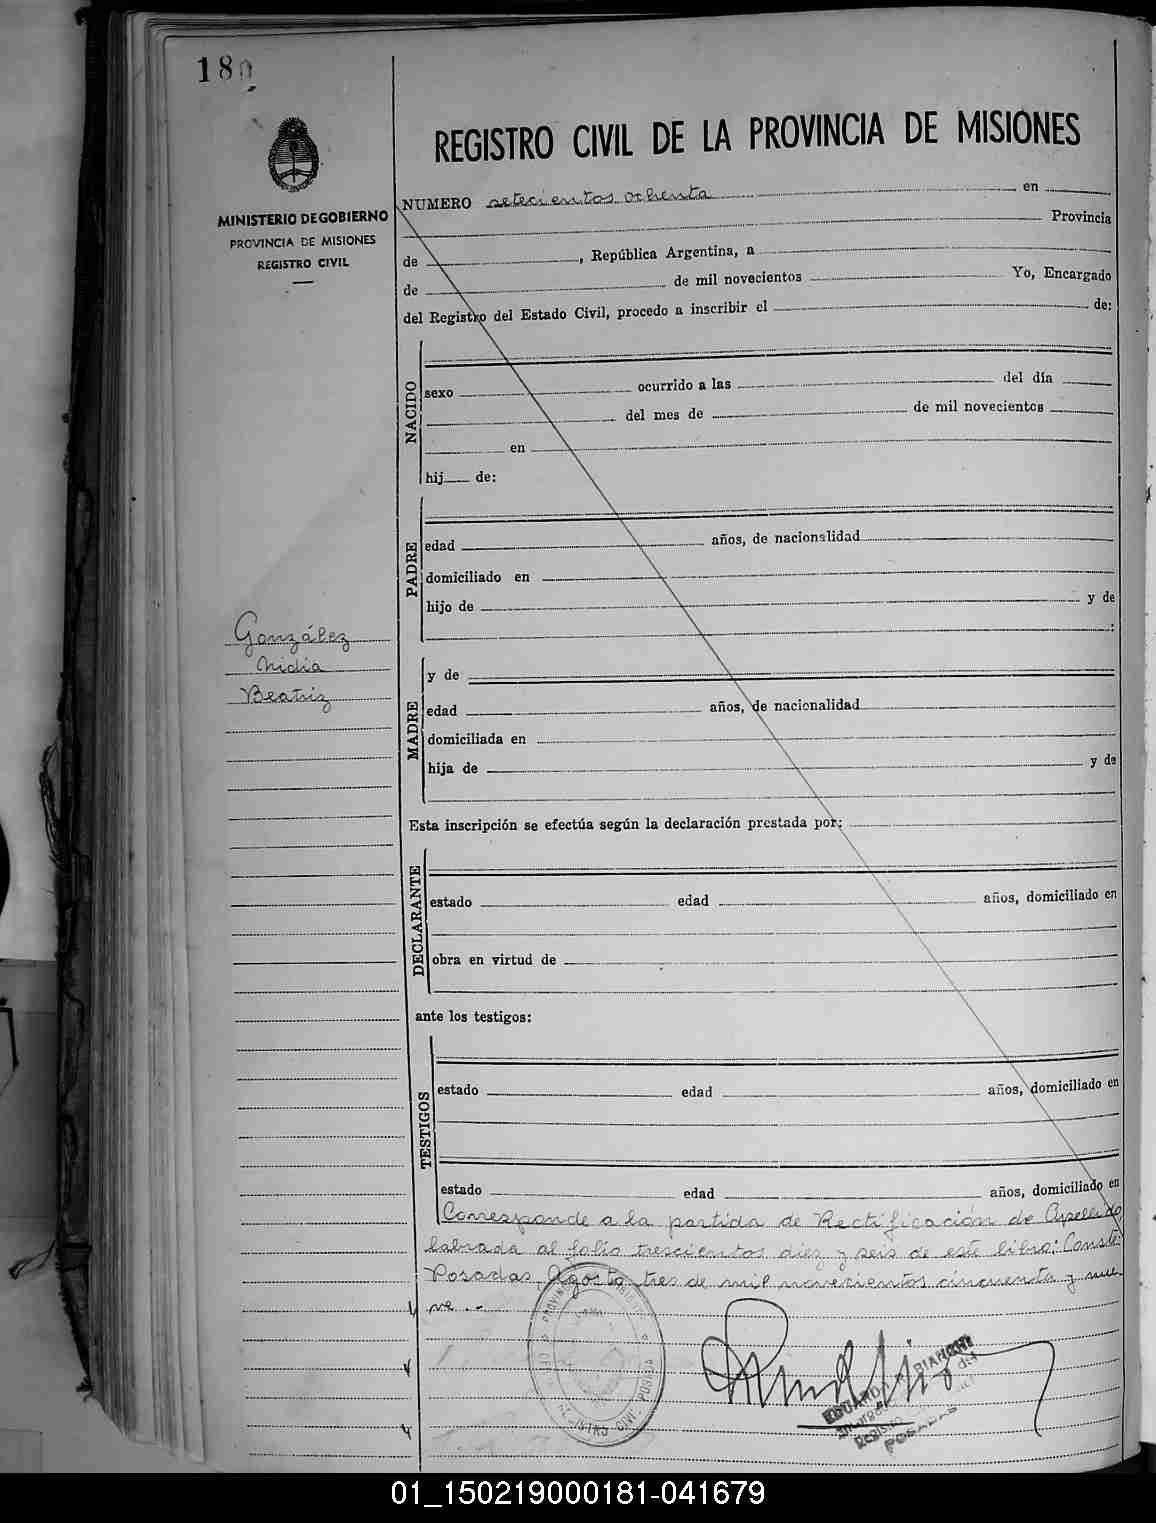 180
MINISTERIO DE GOBIERNO
PROVINCIA DE MISIONES
REGISTRO CIVIL
REGISTRO CIVIL DE LA PROVINCIA DE MISIONES
NUMERO setecientos ochenta en
Provincia
de , República Argentina, a
de de mil novecientos Yo, Encargado
del Registro del Estado Civil, procedo a inscribir el de:
NACIDO
sexo ocurrido a las del día
del mes de de mil novecientos
en
hij de:
PADRE
edad años, de nacionalidad
domiciliado en
hijo de y de
:
González
Nidia
Beatriz
MADRE
y de
edad años, de nacionalidad
domiciliada en
hija de y de
Esta inscripción se efectúa según la declaración prestada por:
DECLARANTE
estado edad años, domiciliado en
obra en virtud de
ante los testigos:
TESTIGOS
estado edad años, domiciliado en
estado edad años, domiciliado en
Corresponde a la partida de Rectificación de Apellido
labrada al folio trescientos diez y seis de este libro: Conste:
Posadas, Agosto tres de mil novecientos cincuenta y nue-
ve.-
EDUARDO BIANCHI
Registro
POSADAS
01_150219000181-041679